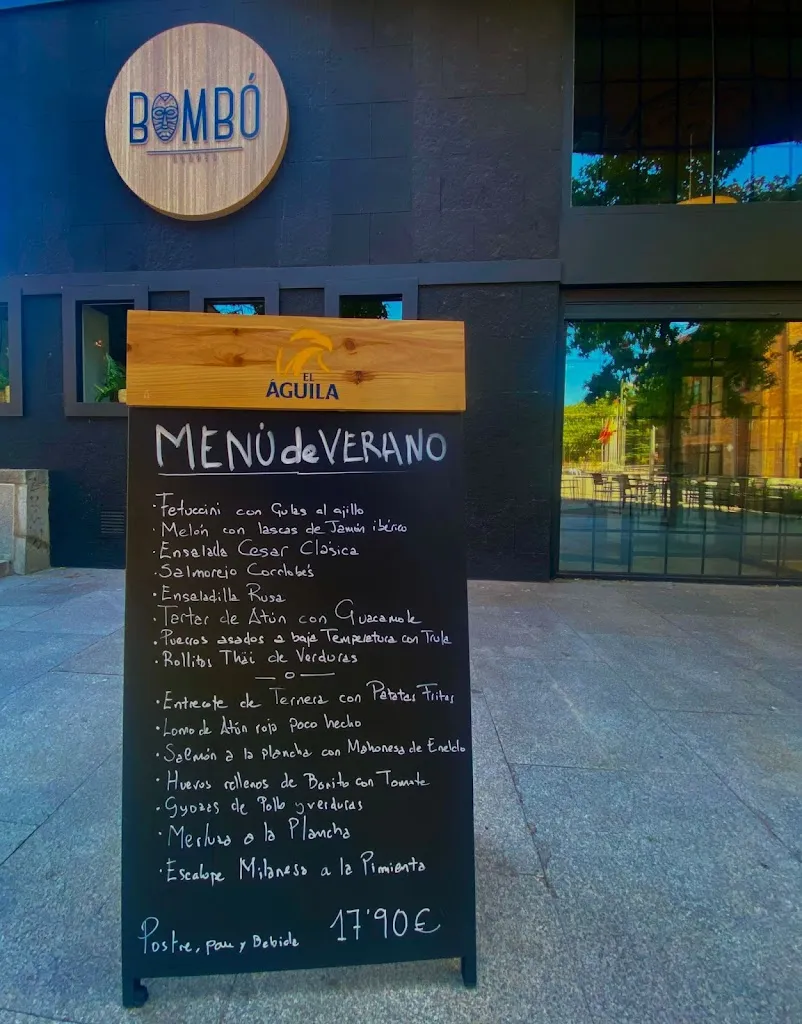 BOMBÓ
EL
ÁGUILA
MENÚ de VERANO
· Fetuccini con Gulas al ajillo
· Melón con lascas de Jamón ibérico
· Ensalada Cesar Clásica
· Salmorejo Cordobés
· Ensaladilla Rusa
· Tartar de Atún con Guacamole
· Puerros asados a baja Temperatura con Trufa
· Rollitos Thai de Verduras
— o —
· Entrecote de Ternera con Patatas Fritas
· Lomo de Atún rojo poco hecho
· Salmón a la plancha con Mahonesa de Eneldo
· Huevos rellenos de Bonito con Tomate
· Gyozas de Pollo y verduras
· Merluza a la Plancha
· Escalope Milanesa a la Pimienta
Postre, pan y Bebida 17'90€